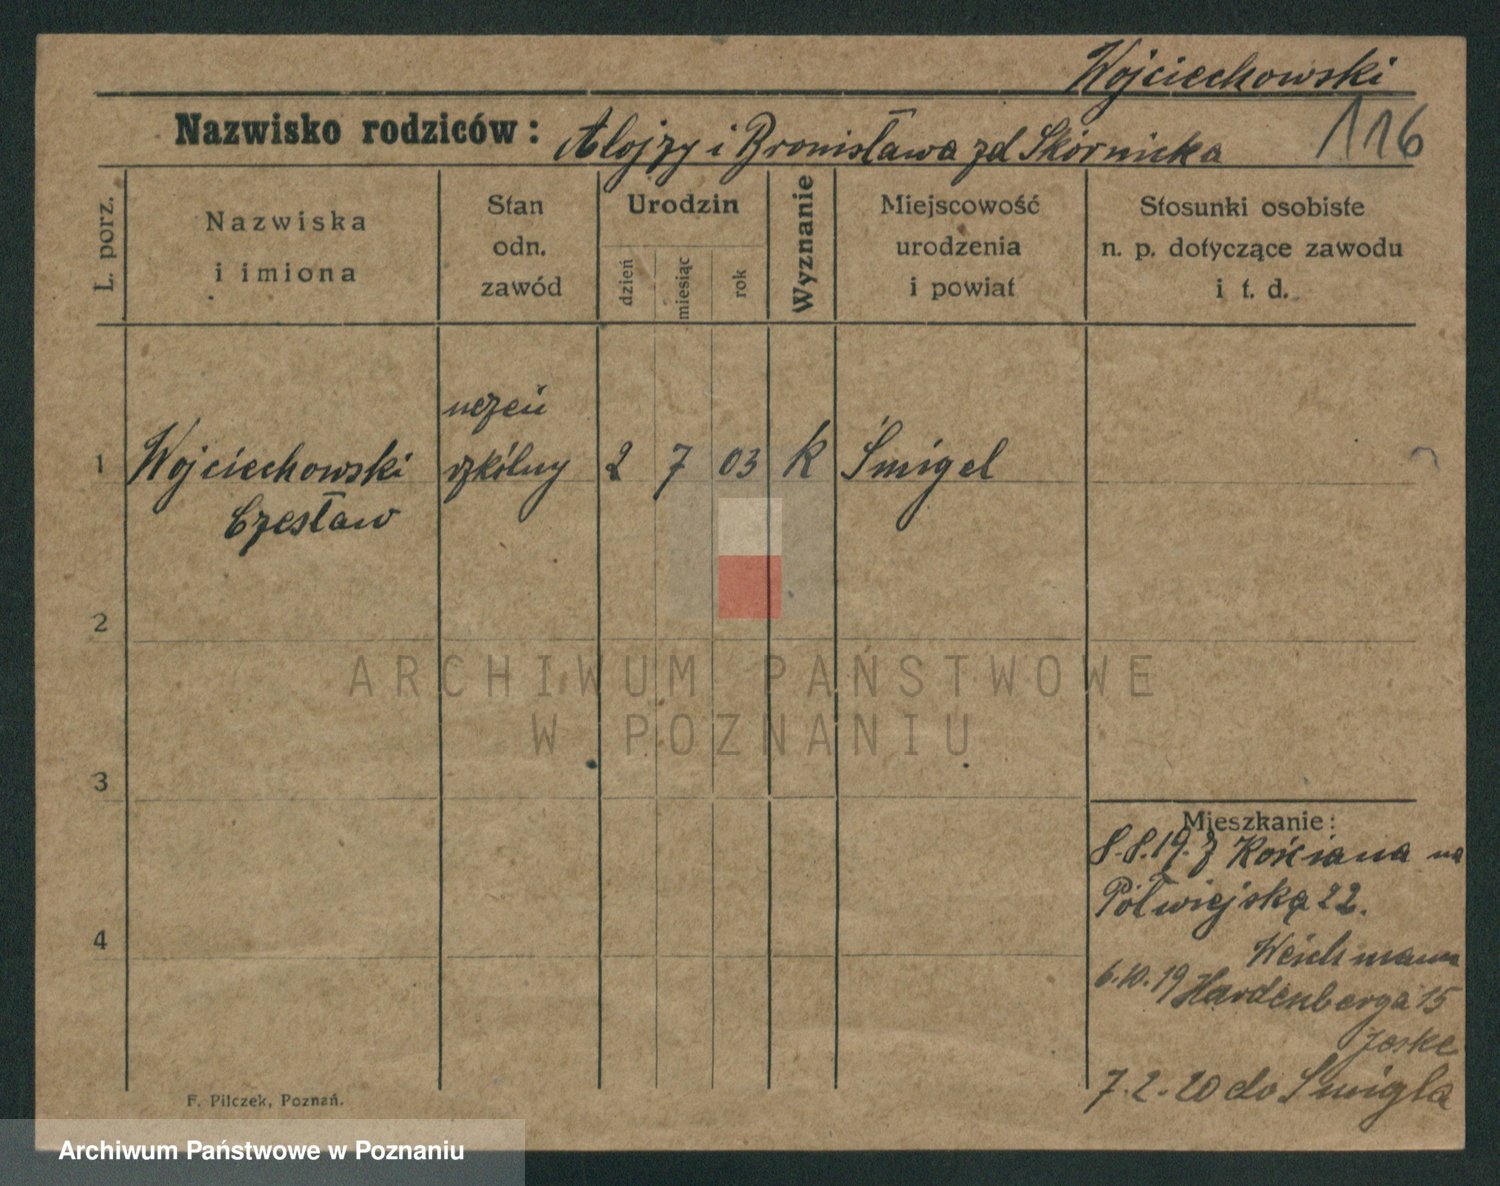 Wojciechowski
Nazwisko rodziców: Alojzy i Bronisława zd Skórnicka 116
L. porz.
Nazwiska
i imiona
Stan
odn.
zawód
Urodzin
dzień
miesiąc
rok
Wyznanie
Miejscowość
urodzenia
i powiat
Stosunki osobiste
n. p. dotyczące zawodu
i t. d.
uczeń
1 Wojciechowski szkólny 2 7 03 k Śmigel
Czesław
2
3
4
Mieszkanie:
8.8.19. z Kościana na
Półwiejską 22.
Weichmann
6.10.19 Hardenberga 15
Joske
7.2.20 do Śmigla
F. Pilczek, Poznań.
ARCHIWUM PAŃSTWOWE
W POZNANIU
Archiwum Państwowe w Poznaniu